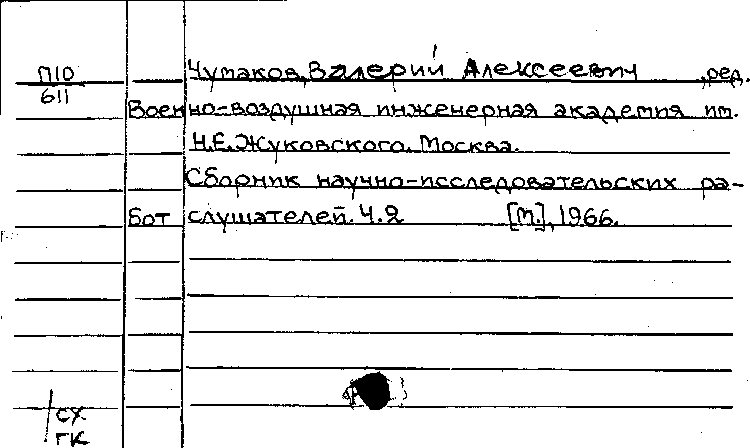 П10
611
Чумаков, Валерий Алексеевич, ред.
Военно-воздушная инженерная академия им.
Н.Е. Жуковского. Москва.
Сборник научно-исследовательских ра-
бот слушателей. Ч.2 [М.], 1966.
СХ
ГК